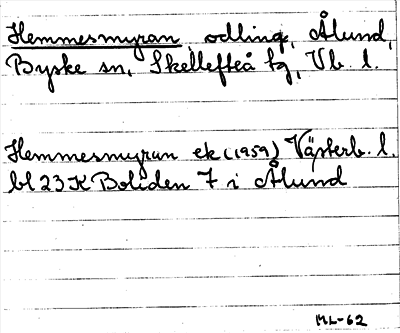 Hemmesmyran, odling, Ålund,
Byske sn, Skellefteå kg, Vb. l.
Hemmesmyran ek (1959) Västerb. l.
bl 23 K Boliden 7 i Ålund
ML-62